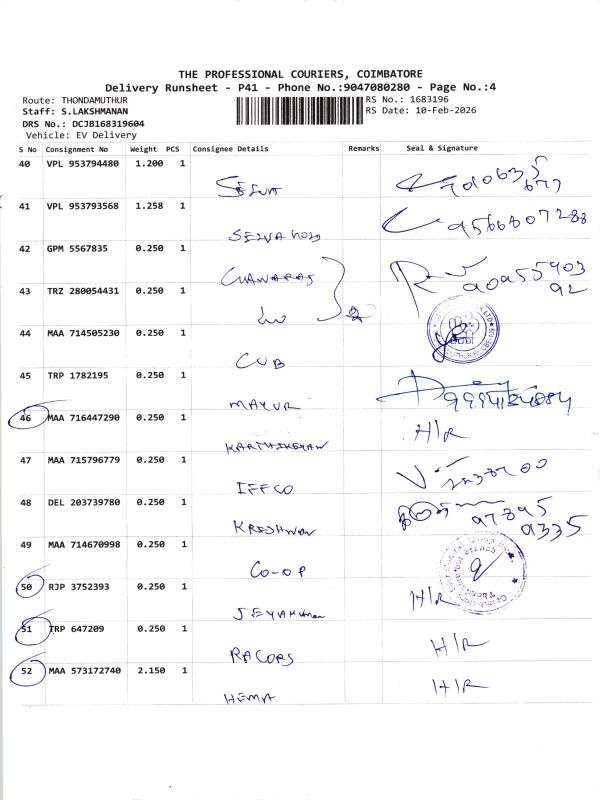 THE PROFESSIONAL COURIERS, COIMBATORE
Delivery Runsheet - P41 - Phone No.:9047080280 - Page No.:4
Route: THONDAMUTHUR
RS No.: 1683196
Staff: S.LAKSHMANAN
RS Date: 10-Feb-2026
DRS No.: DCJB168319604
Vehicle: EV Delivery
S No Consignment No Weight PCS Consignee Details Remarks Seal & Signature
40 VPL 953794480 1.200 1
SELVA
41 VPL 953793568 1.258 1
9566807288
SELVA
42 GPM 5567835 0.250 1
43 TRZ 280054431 0.250 1
2
44 MAA 714505230 0.250 1
CUB
45 TRP 1782195 0.250 1
MAYUR
46 MAA 716447290 0.250 1 H/R
KARTHIKEYAN
47 MAA 715796779 0.250 1
IFFCO
48 DEL 203739780 0.250 1
97895
9335
49 MAA 714670998 0.250 1
CO-OP
50 RJP 3752393 0.250 1 H/R
JEYAKUMAR
51 TRP 647209 0.250 1 H/R
52 MAA 573172740 2.150 1 H/R
HEMA